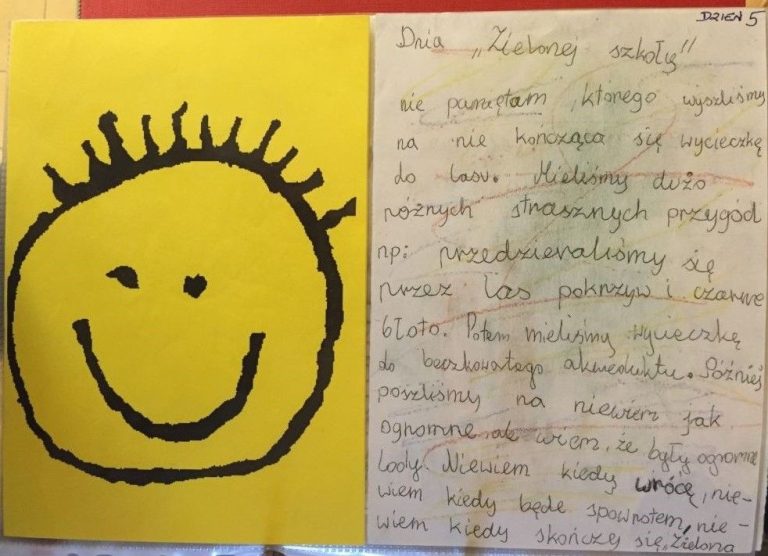 DZIEŃ 5
Dnia „Zielonej szkoły"
nie pamiętam którego wyszliśmy
na nie kończąca się wycieczkę
do lasu. Mieliśmy dużo
różnych strasznych przygód
np: przedzieraliśmy się
przez las pokrzyw i czarne
błoto. Potem mieliśmy wycieczkę
do beczkowatego akweduktu. Później
poszliśmy na niewiem jak
ogromne ale wiem, że były ogromne
lody. Niewiem kiedy wrócę, nie-
wiem kiedy będe spowrotem, nie-
wiem kiedy skończy się „Zielona